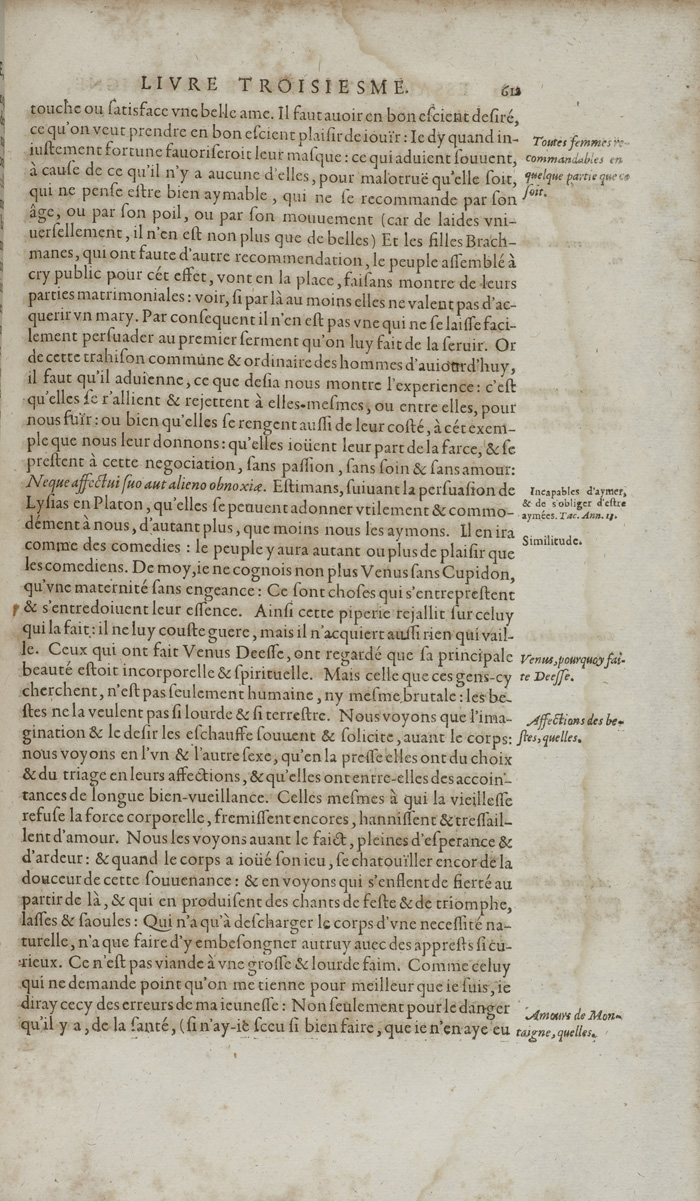 LIVRE TROISIESME. 612
touche ou ſatisface vne belle ame. Il faut auoir en bon eſcient deſiré,
ce qu'on veut prendre en bon eſcient plaiſir de iouïr: Ie dy quand in-
iuſtement fortune fauoriſeroit leur maſque: ce qui aduient ſouuent,
à cauſe de ce qu'il n'y a aucune d'elles, pour malotruë qu'elle ſoit,
qui ne penſe eſtre bien aymable, qui ne ſe recommande par ſon
âge, ou par ſon poil, ou par ſon mouuement (car de laides vni-
uerſellement, il n'en eſt non plus que de belles) Et les filles Brach-
manes, qui ont faute d'autre recommendation, le peuple aſſemblé à
cry public pour cét effet, vont en la place, faiſans montre de leurs
parties matrimoniales: voir, ſi par là au moins elles ne valent pas d'ac-
querir vn mary. Par conſequent il n'en eſt pas vne qui ne ſe laiſſe faci-
lement perſuader au premier ſerment qu'on luy fait de la ſeruir. Or
de cette trahiſon commune & ordinaire des hommes d'auiourd'huy,
il faut qu'il aduienne, ce que deſia nous montre l'experience: c'eſt
qu'elles ſe r'allient & rejettent à elles-meſmes, ou entre elles, pour
nous fuïr: ou bien qu'elles ſe rengent auſſi de leur coſté, à cét exem-
ple que nous leur donnons: qu'elles ioüent leur part de la farce, & ſe
preſtent à cette negociation, ſans paſſion, ſans ſoin & ſans amour:
Neque affectui ſuo aut alieno obnoxiæ. Eſtimans, ſuiuant la perſuaſion de
Lyſias en Platon, qu'elles ſe peuuent adonner vtilement & commo-
dément à nous, d'autant plus, que moins nous les aymons. Il en ira
comme des comedies: le peuple y aura autant ou plus de plaiſir que
les comediens. De moy, ie ne cognois non plus Venus ſans Cupidon,
qu'vne maternité ſans engeance: Ce ſont choſes qui s'entrepreſtent
& s'entredoiuent leur eſſence. Ainſi cette piperie rejallit ſur celuy
qui la fait: il ne luy couſte guere, mais il n'acquiert auſſi rien qui vail-
le. Ceux qui ont fait Venus Deeſſe, ont regardé que ſa principale
beauté eſtoit incorporelle & ſpirituelle. Mais celle que ces gens-cy
cherchent, n'eſt pas ſeulement humaine, ny meſme brutale: les be-
ſtes ne la veulent pas ſi lourde & ſi terreſtre. Nous voyons que l'ima-
gination & le deſir les eſchauffe ſouuent & ſolicite, auant le corps:
nous voyons en l'vn & l'autre ſexe, qu'en la preſſe elles ont du choix
& du triage en leurs affections, & qu'elles ont entre-elles des accoin-
tances de longue bien-vueillance. Celles meſmes à qui la vieilleſſe
refuſe la force corporelle, fremiſſent encores, hanniſſent & treſſail-
lent d'amour. Nous les voyons auant le faict, pleines d'eſperance &
d'ardeur: & quand le corps a ioüé ſon ieu, ſe chatouïller encor de la
douceur de cette ſouuenance: & en voyons qui s'enflent de fierté au
partir de là, & qui en produiſent des chants de feſte & de triomphe,
laſſes & ſaoules: Qui n'a qu'à deſcharger le corps d'vne neceſſité na-
turelle, n'a que faire d'y embeſongner autruy auec des appreſts ſi cu-
rieux. Ce n'eſt pas viande à vne groſſe & lourde faim. Comme celuy
qui ne demande point qu'on me tienne pour meilleur que ie ſuis, ie
diray cecy des erreurs de ma ieuneſſe: Non ſeulement pour le danger
qu'il y a, de la ſanté, (ſi n'ay-ie ſceu ſi bien faire, que ie n'en aye eu
Toutes femmes re-
commandables en
quelque partie que ce
ſoit.
Incapables d'aymer,
& de s'obliger d'eſtre
aymées. Tac. Ann. 13.
Similitude.
Venus, pourquoy fai-
te Deeſſe.
Affections des be-
ſtes, quelles.
Amours de Mon-
taigne, quelles.